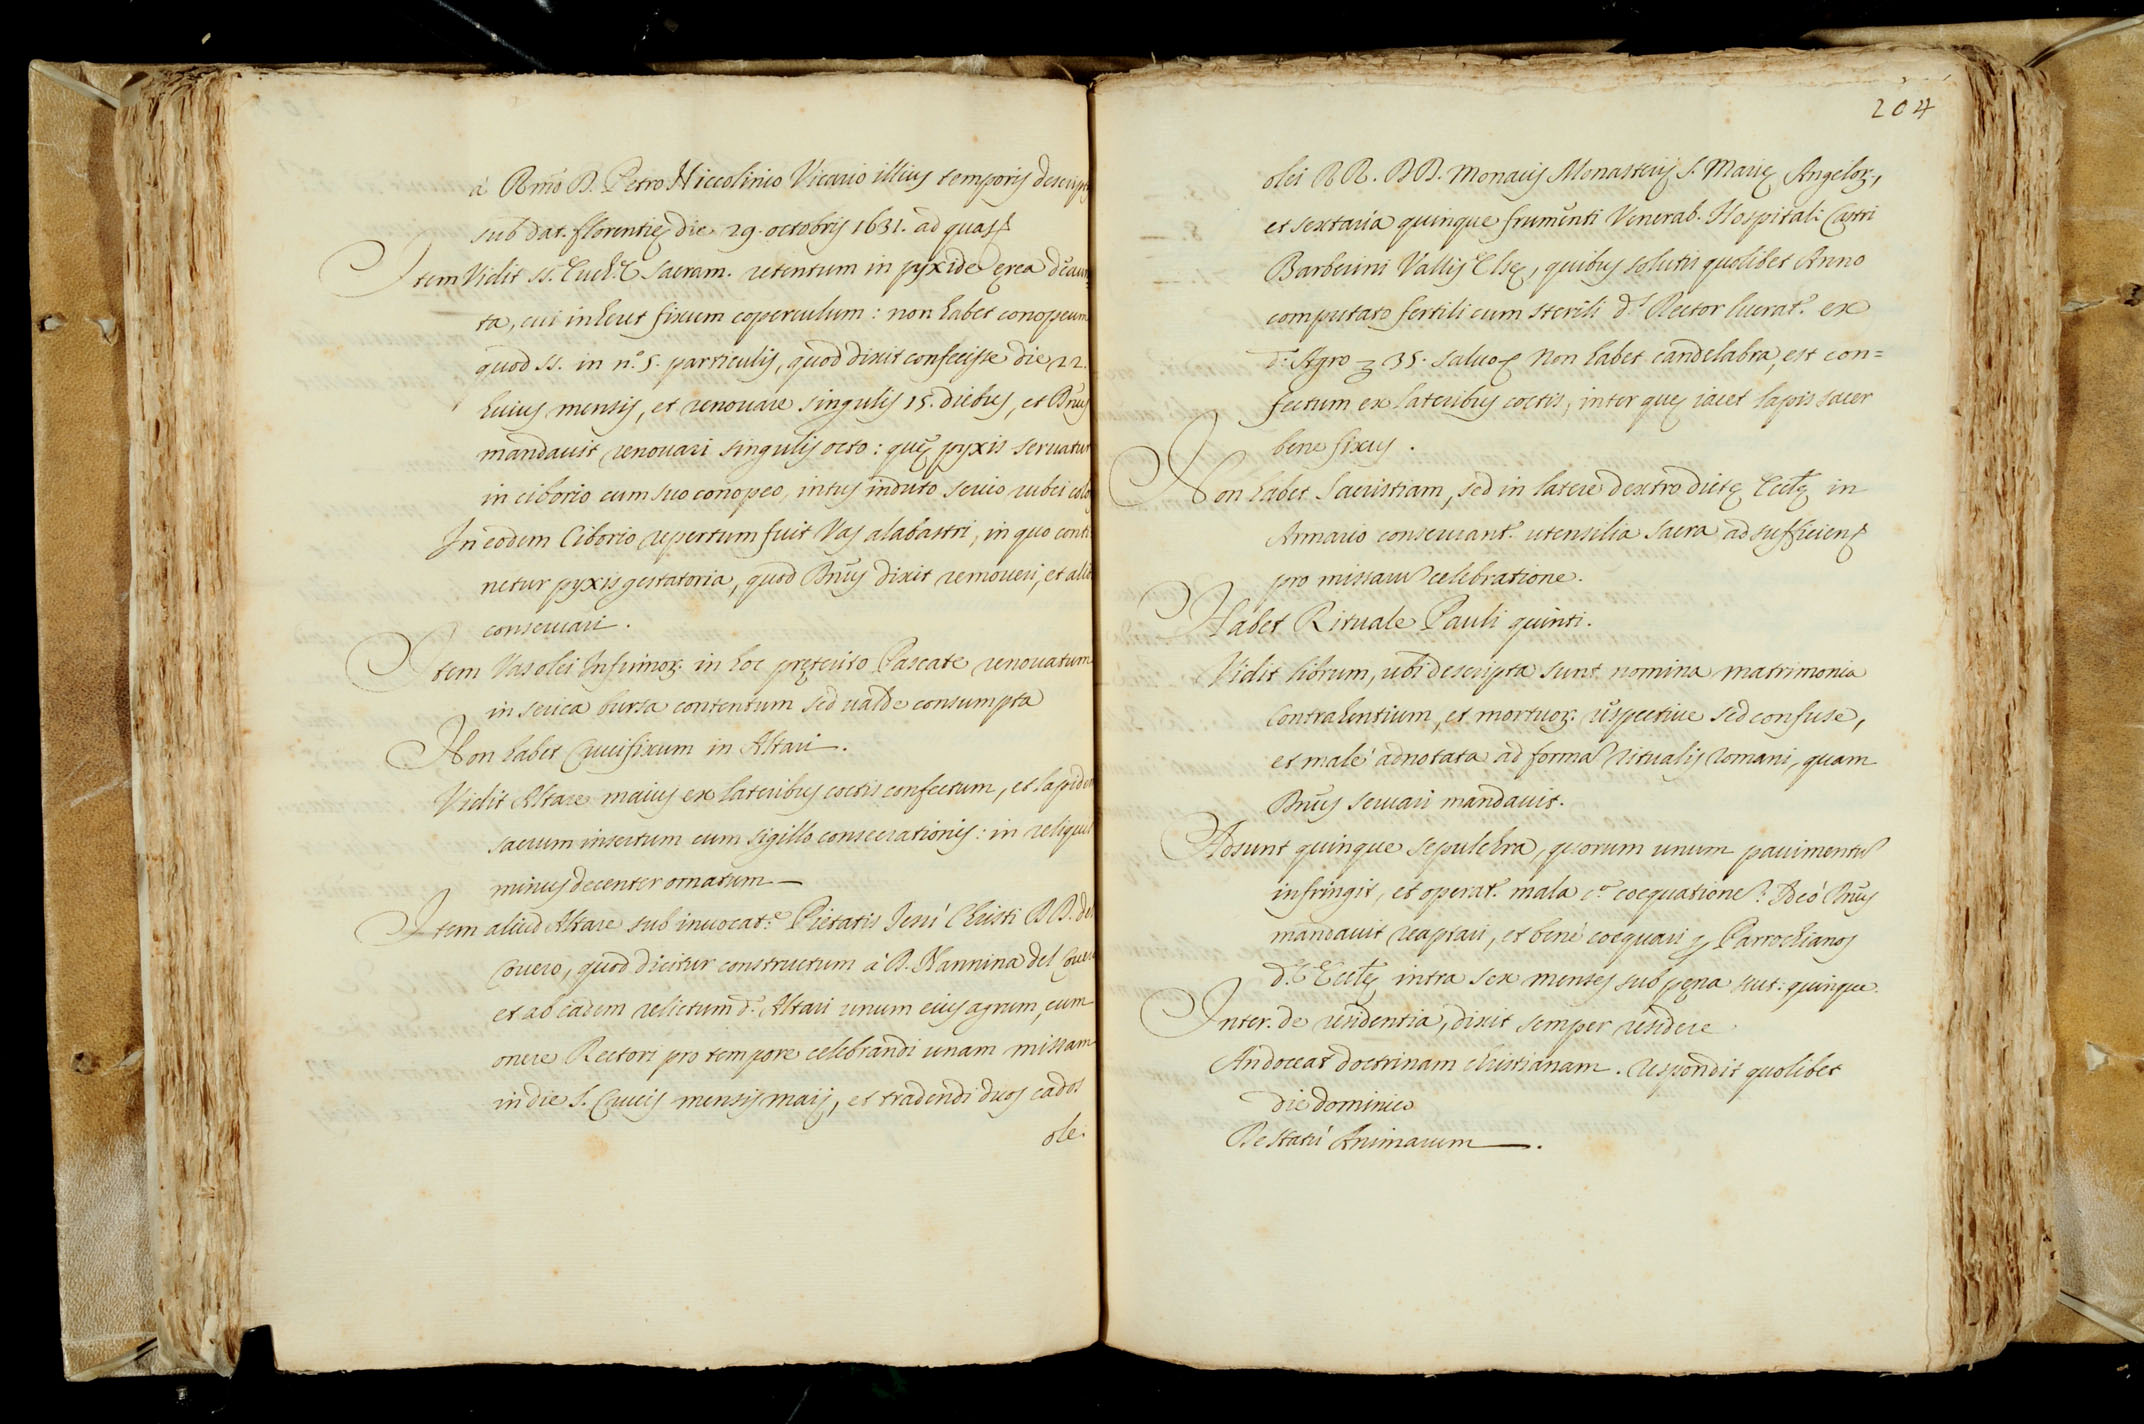 à R.mo D. Petro Niccolinio Vicario illius temporis descript
sub dat. florentię die 29. octobris 1631. ad quas
Item Vidit SS. Euch. Sacram. retentum in pyxide ęrea deaura
ta, cui inheret fixum coperculum: non habet conopeum
quod SS. in n.º 5. particulis, quod dixit confecisse die 22.
huius mensis, et renouare singulis 15. diebus, et D.nus
mandauit renouari singulis octo: quę pyxis seruatur
in ciborio cum suo conopeo, intus induto serico rubei colo
In eodem Ciborio repertum fuit Vas alabastri, in quo conti
netur pyxis gestatoria, quod D.nus dixit remoueri, et alibi
conseruari.
Item Vas olei Infirmor. in hoc pręterito Pascate renouatum
in serica bursa contentum sed ualde consumpta
Non habet Crucifixum in Altari.
Vidit Altare maius ex lateribus coctis confectum, et lapidem
sacrum insertum cum sigillo consecrationis: in reliquis
minus decenter ornatum —
Item aliud Altare sub inuocat.e Pietatis Iesu Christi DD. del
Couero, quod dicitur constructum à D. Nannina del Couero
et ab eadem relictum d. Altari unum eius agrum, cum
onere Rectori pro tempore celebrandi unam missam
in die S. Crucis mensis maij, et tradendi duos cados
ole.
204
olei RR. DD. Monacis Monasterij S. Marię Angelor,
et sextaria quinque frumenti Venerab. Hospital. Castri
Barberini Vallis Elsę, quibus solutis quolibet Anno
computato fertili cum sterili d. Rector lucrat. ex
d. Agro 35. saluo Non habet candelabra, est con=
fectum ex lateribus coctis, inter quę iacet lapis sacer
bene fixus.
Non habet Sacristiam, sed in latere dextro dictę Eccl.ę in
Armario conseruant. utensilia sacra ad sufficien
pro missaru celebratione.
Habet Rituale Pauli quinti.
Vidit librum, ubi descripta sunt nomina matrimonia
contrahentium, et mortuor. respectiue sed confuse,
et malè adnotata ad forma ritualis romani, quam
D.nus seruari mandauit.
Adsunt quinque sepulchra, quorum unum pauimentu
infringit, et operat. mala coequatione. Ideò D.nus
mandauit reaptari, et benè coequari p Parrochianos
d. Eccl.ę intra sex menses sub pęna scut: quinque.
Inter. de residentia, dixit semper residere
An doceat doctrinam christianam. respondit quolibet
die dominico
De Statu Animarum —.